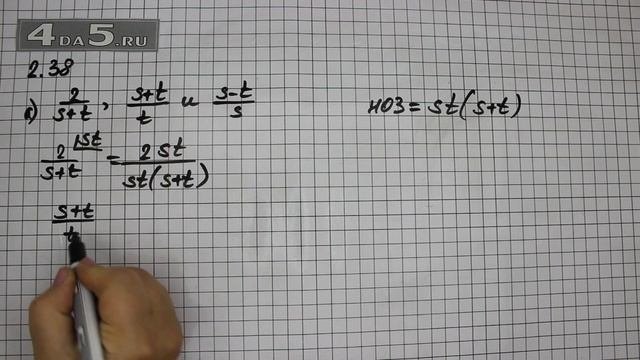 4DA5.RU
2.38
а) 2/(s+t), (s+t)/t и (s-t)/s
НОЗ = st(s+t)
2/(s+t) |st = 2st/(st(s+t))
(s+t)/t